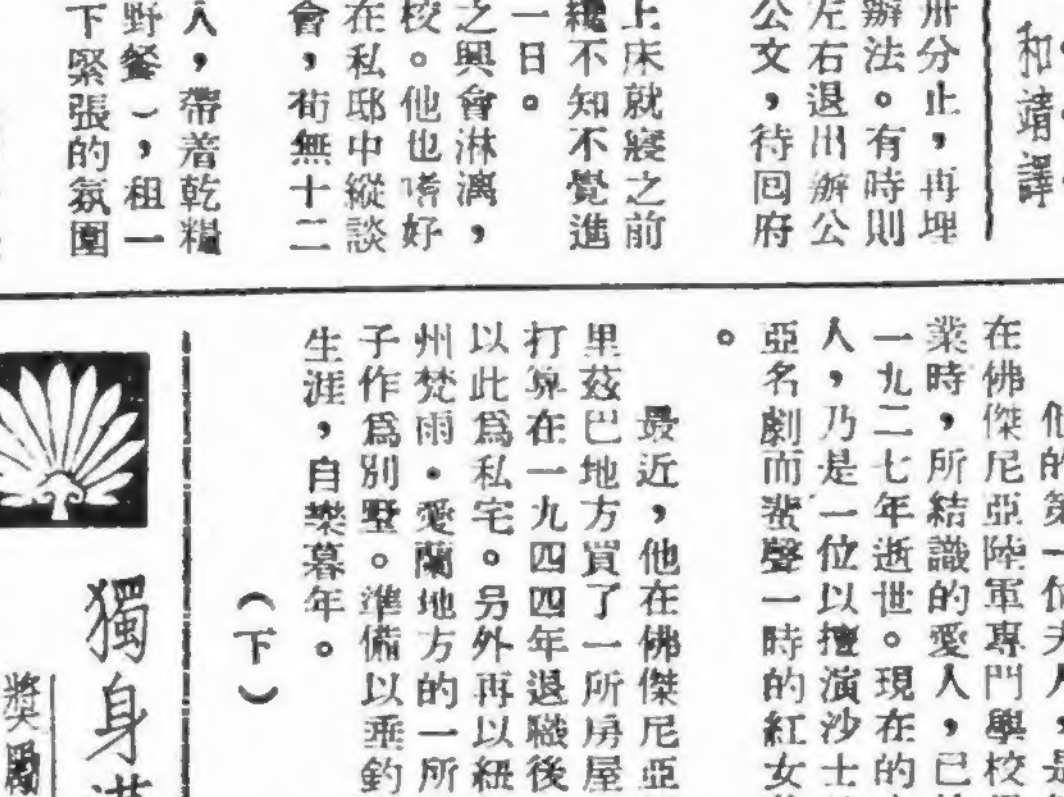 和靖譯
卅分止，再埋
辦法。有時則
左右退出辦公
公文，待回府
上床就寢之前
不知不覺進
一日。
之興會淋漓，
校。他也嗜好
在私邸中縱談
會，苟無十二
人，帶着乾糧
野餐），租一
下緊張的氛圍
他的第一位夫人，是
在佛傑尼亞陸軍專門學校
業時，所結識的愛人，已
一九二七年逝世。現在的
人，乃是一位以擅演沙士
亞名劇而蜚聲一時的紅女
。
最近，他在佛傑尼亞
里茲巴地方買了一所房屋
打算在一九四四年退職後
以此爲私宅。另外再以紐
州梵雨・愛蘭地方的一所
子作爲別墅。準備以垂釣
生涯，自樂暮年。
（下）
獨身
獎